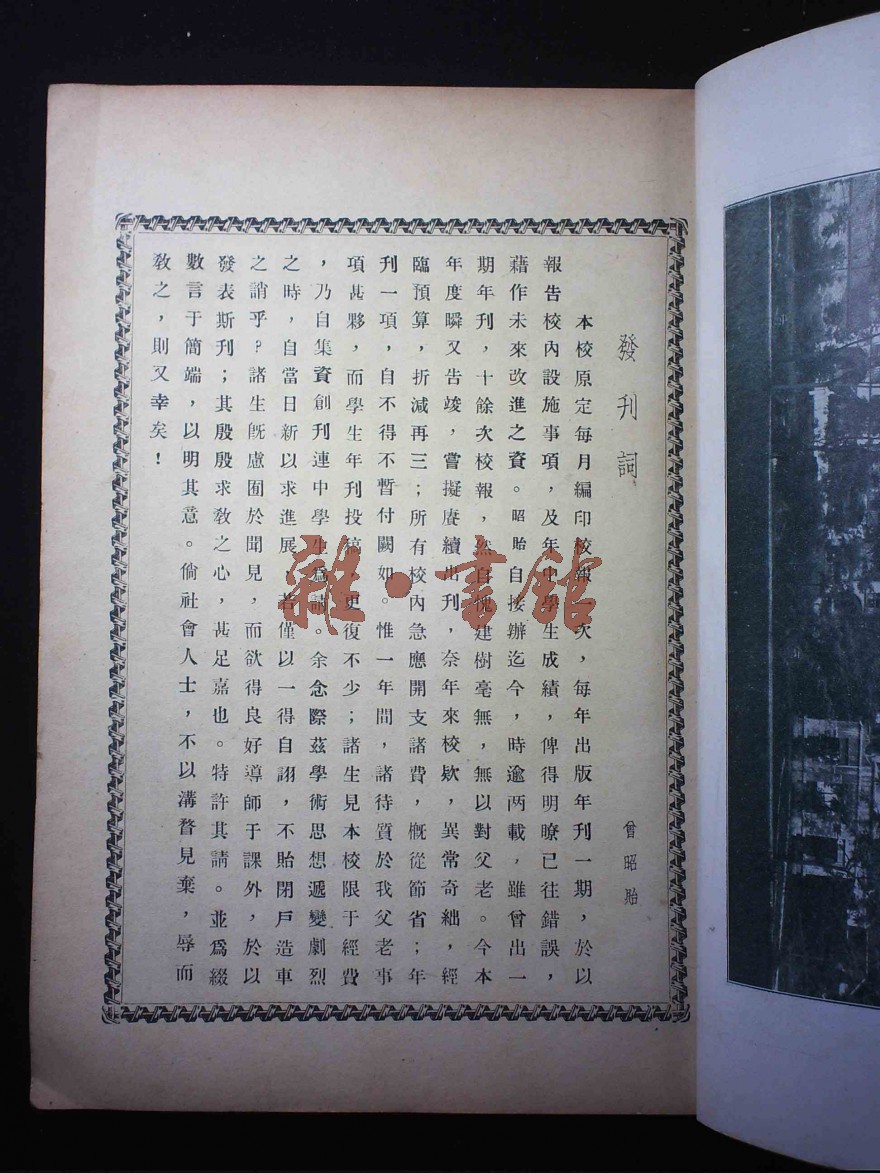 發刊詞
曾昭貽
本校原定每月編印校報次，每年出版年刊一期，於以
報告校內設施事項，及年中學生成績，俾得明瞭已往錯誤，
藉作未來改進之資。昭貽自接辦迄今，時逾兩載，雖曾出一
期年刊，十餘次校報，然自愧建樹毫無，無以對父老。今本
年度瞬又告竣，嘗擬賡續出刊，奈年來校欵，異常奇絀，經
臨預算，折減再三；所有校內急應開支諸費，概從節省；年
刊一項，自不得不暫付闕如。惟一年間，諸待質於我父老事
項甚夥，而學生年刊投稿，更復不少；諸生見本校限于經費
，乃自集資創刊連中學生為請。余念際茲學術思想遞變劇烈
之時，自當日新以求進展，若僅以一得自詡，不貽閉戶造車
之誚乎？諸生旣慮囿於聞見，而欲得良好導師于課外，於以
發表斯刊；其殷殷求教之心，甚足嘉也。特許其請。並為綴
數言于簡端，以明其意。倘社會人士，不以溝瞀見棄，辱而
教之，則又幸矣！
雜·書館